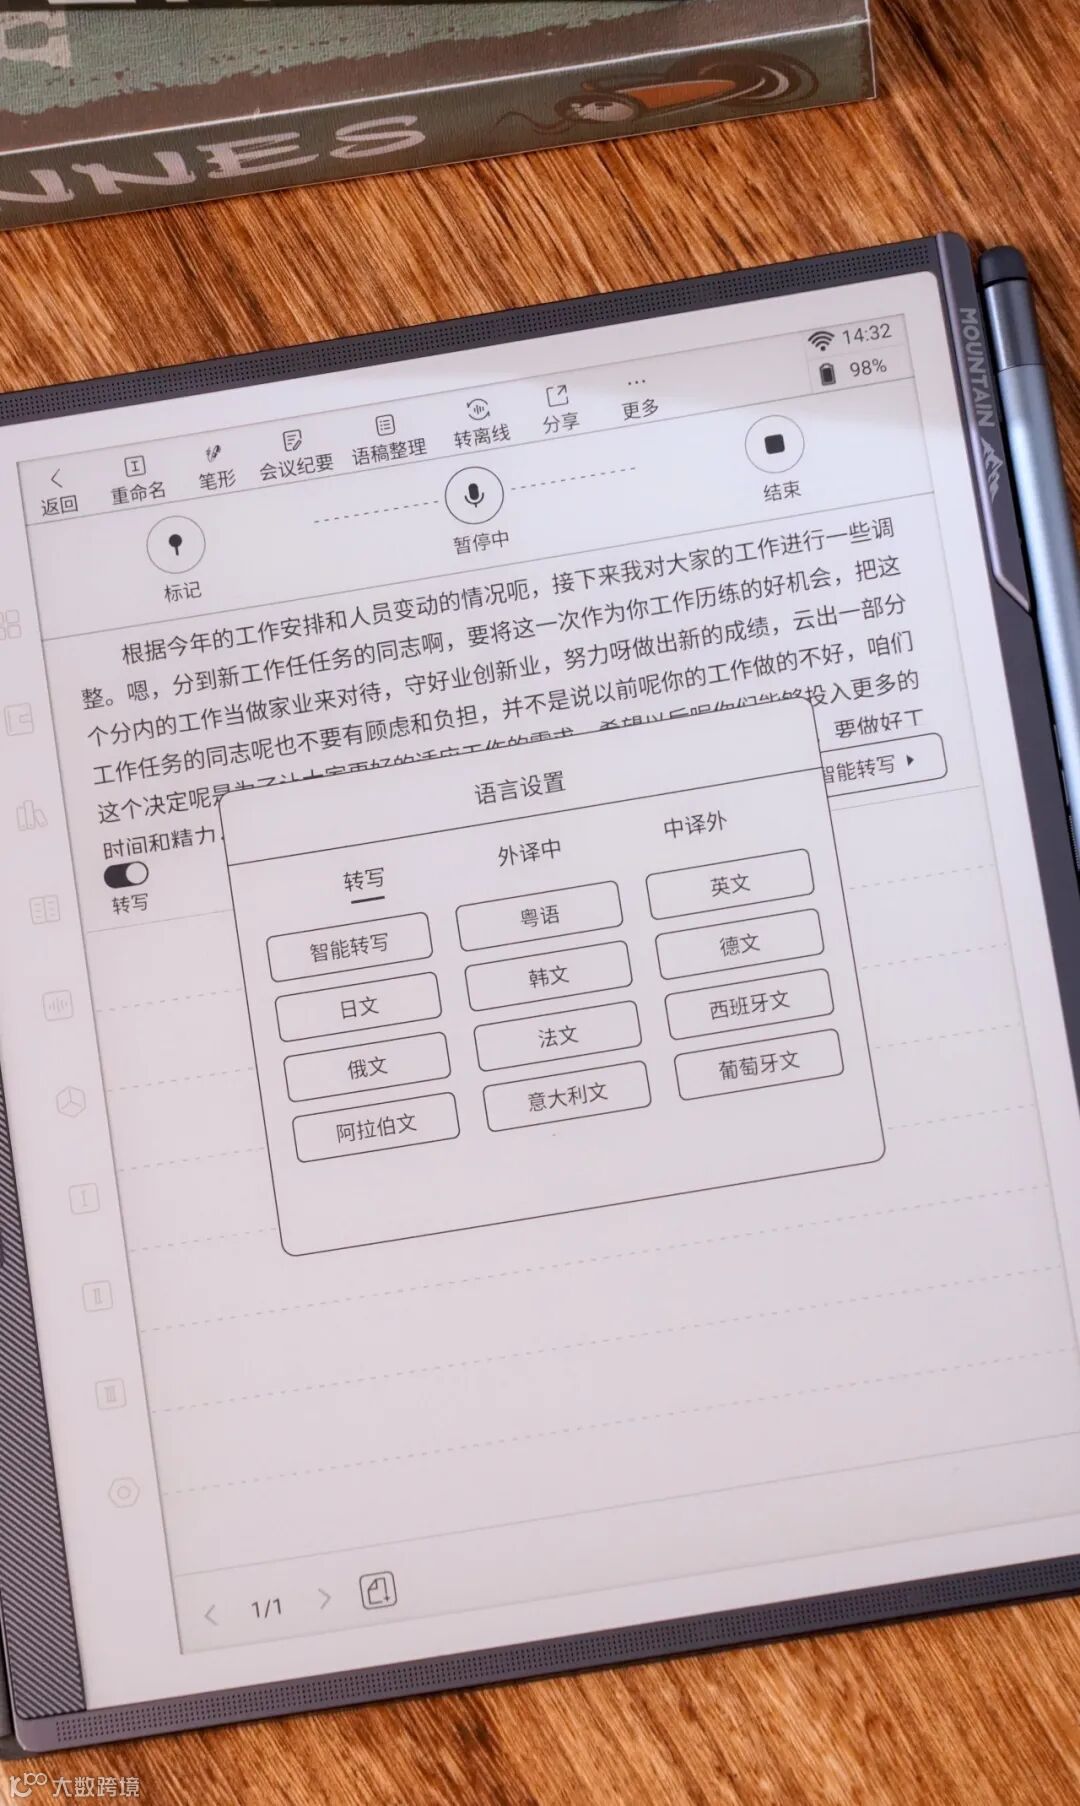 NNES
MOUNTAIN
14:32
98%
返回
重命名
笔形
会议纪要
语稿整理
转离线
分享
更多
标记
暂停中
结束
根据今年的工作安排和人员变动的情况呃，接下来我对大家的工作进行一些调
整。嗯，分到新工作任任务的同志啊，要将这一次作为你工作历练的好机会，把这
个分内的工作当做家业来对待，守好业创新业，努力呀做出新的成绩，云出一部分
工作任务的同志呢也不要有顾虑和负担，并不是说以前呢你的工作做的不好，咱们
这个决定呢是为了让大家更好的适应工作的需求，希望以后呢你们能够投入更多的
时间和精力，
要做好工
转写
智能转写
语言设置
转写 外译中 中译外
智能转写 粤语 英文
日文 韩文 德文
俄文 法文 西班牙文
阿拉伯文 意大利文 葡萄牙文
1/1
大数跨境